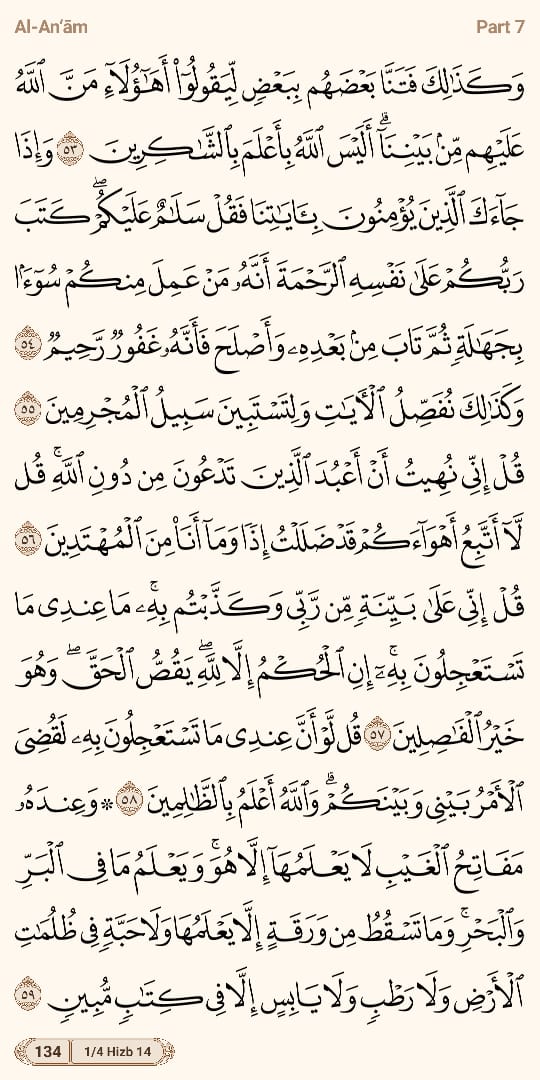 Al-An‘ām Part 7
وَكَذَٰلِكَ فَتَنَّا بَعْضَهُم بِبَعْضٍ لِّيَقُولُوٓا۟ أَهَـٰٓؤُلَآءِ مَنَّ ٱللَّهُ
عَلَيْهِم مِّنۢ بَيْنِنَآ ۗ أَلَيْسَ ٱللَّهُ بِأَعْلَمَ بِٱلشَّـٰكِرِينَ ٥٣ وَإِذَا
جَآءَكَ ٱلَّذِينَ يُؤْمِنُونَ بِـَٔايَـٰتِنَا فَقُلْ سَلَـٰمٌ عَلَيْكُمْ ۖ كَتَبَ
رَبُّكُمْ عَلَىٰ نَفْسِهِ ٱلرَّحْمَةَ أَنَّهُۥ مَنْ عَمِلَ مِنكُمْ سُوٓءًۢا
بِجَهَـٰلَةٍ ثُمَّ تَابَ مِنۢ بَعْدِهِۦ وَأَصْلَحَ فَأَنَّهُۥ غَفُورٌ رَّحِيمٌ ٥٤
وَكَذَٰلِكَ نُفَصِّلُ ٱلْـَٔايَـٰتِ وَلِتَسْتَبِينَ سَبِيلُ ٱلْمُجْرِمِينَ ٥٥
قُلْ إِنِّى نُهِيتُ أَنْ أَعْبُدَ ٱلَّذِينَ تَدْعُونَ مِن دُونِ ٱللَّهِ ۚ قُل
لَّآ أَتَّبِعُ أَهْوَآءَكُمْ ۙ قَدْ ضَلَلْتُ إِذًا وَمَآ أَنَا۠ مِنَ ٱلْمُهْتَدِينَ ٥٦
قُلْ إِنِّى عَلَىٰ بَيِّنَةٍ مِّن رَّبِّى وَكَذَّبْتُم بِهِۦ ۚ مَا عِندِى مَا
تَسْتَعْجِلُونَ بِهِۦٓ ۚ إِنِ ٱلْحُكْمُ إِلَّا لِلَّهِ ۖ يَقُصُّ ٱلْحَقَّ ۖ وَهُوَ
خَيْرُ ٱلْفَـٰصِلِينَ ٥٧ قُل لَّوْ أَنَّ عِندِى مَا تَسْتَعْجِلُونَ بِهِۦ لَقُضِىَ
ٱلْأَمْرُ بَيْنِى وَبَيْنَكُمْ ۗ وَٱللَّهُ أَعْلَمُ بِٱلظَّـٰلِمِينَ ٥٨ * وَعِندَهُۥ
مَفَاتِحُ ٱلْغَيْبِ لَا يَعْلَمُهَآ إِلَّا هُوَ ۚ وَيَعْلَمُ مَا فِى ٱلْبَرِّ
وَٱلْبَحْرِ ۚ وَمَا تَسْقُطُ مِن وَرَقَةٍ إِلَّا يَعْلَمُهَا وَلَا حَبَّةٍ فِى ظُلُمَـٰتِ
ٱلْأَرْضِ وَلَا رَطْبٍ وَلَا يَابِسٍ إِلَّا فِى كِتَـٰبٍ مُّبِينٍ ٥٩
134 1/4 Hizb 14